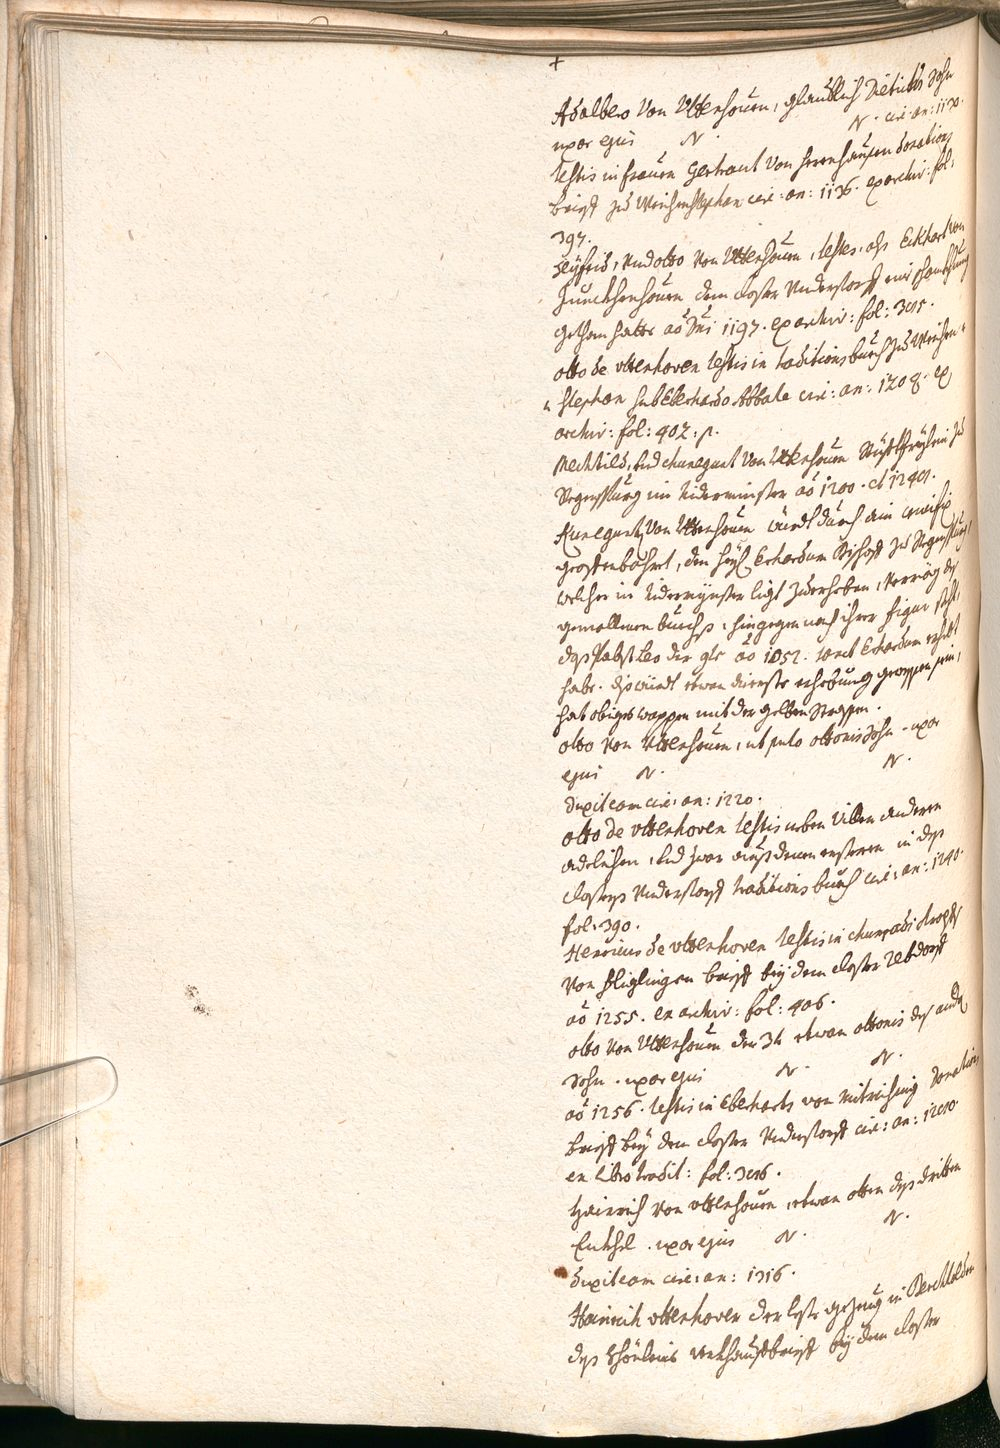 +
Adalbero von Uttenhouen, glaublich Dietrichs Sohn
uxor ejus N. N. circ: an: 1130.
testis in frauen Gertraut von herrenhausen donations
brieff zu Weichenstephan circ: an: 1136. ex archiv: fol:
397.
Seyfrid, und otto von Uttenhouen, testes, als Eckhart von
Junckhenhouen dem closter Understorff ein schanckhung
gethan hatte aõ Dni 1197. ex archiv: fol: 305.
otto de uttenhoven testis in traditions buech zu Weichen-
stephan sub Eberhardo Abbate circ: an: 1208. ex
archiv: fol: 402. p.
Mechtild, und chunegunt von Uttenhouen Stüfftfreylein zu
Regenspurg im Nidermünster aõ 1200. et 1240.
Kunegunt von Uttenhouen würdt durch ein crucifix
geoffenbahret, den heyl. Erhardum Bischoff zu Regenspurg,
welcher in Nidermünster ligt zuerheben, vermög des
gemaltenen buechs, hingegen nach ihrer figur steht,
das Pabst Leo der 9te aõ 1052. sanct Erhardum erhebt
habe. dis würdt etwan die erste erhebung gewessen sein,
hat obiges wappen mit der gelben Strassen.
otto von Uttenhouen, ut puto ottonis Sohn. uxor
ejus N. N.
duxit eam circ: an: 1220.
otto de uttenhoven testis neben villen anderen
adelichen, und zwar auß denen ersteren in des
closters Understorff traditions buech circ: an: 1240.
fol: 390.
Henricus de uttenhoven testis in chunradi
von brieff bey dem closter Rebdorff
aõ 1255. ex archiv: fol: 406.
otto von Uttenhouen der 3te etwan ottonis des andern
Sohn. uxor ejus N. N.
aõ 1256. testis in Eberharts von donations
brieff bey dem closter Understorff circ: an:
ex libro tradit: fol: 306.
Hainrich von uttenhouen, etwan otten des dritten
Enckhel. uxor ejus N. N.
duxit eam circ: an: 1316.
Hainrich uttenhover der erste gezeug in Berchtolden
des verkhauffbrieff bey dem closter